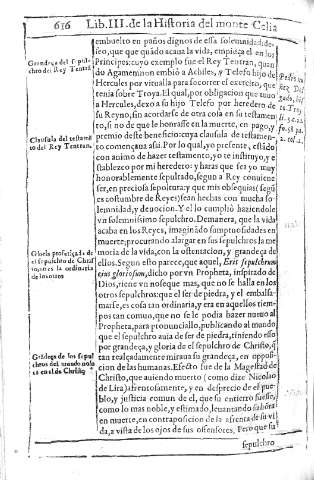 656 Lib.III. de la Historia del monte Celia
embuelto en paños dignos de essa solemnidad desseo,
que que quãdo acaua la vida, empieça el en los
Principes: cuyo exemplo fue el Rey Tentran, quan
do Agamemnon embiò a Achiles, y Telefo hijo de
Hercules por vitualla para socorrer el exercito, que
tenia sobre Troya. El qual, por obligacion que tuuo
a Hercules, dexò a su hijo Telefo por heredero de
su Reyno, sin acordarse de otra cosa en su testamen
to, si no de que le honrasse en la muerte, en pago, y
premio deste beneficio: cuya clausula de testamen-
to començaua assi. Por lo qual, yo presente, estãdo
con animo de hazer testamento, yo te instituyo, y es
tablezco por mi heredero: y haras que sea yo muy
honorablemente sepultado, segun a Rey conuiene
ser, en preciosa sepoltura: y que mis obsequias (segũ
es costumbre de Reyes) sean hechas con mucha so-
lemnidad, y deuocion. Y el lo cumpliò haziendole
vn solemnissimo sepulchro. Demanera, que la vida
acaba en los Reyes, imaginãdo sumptuosidades en
muerte: procurando alargar en sus sepulchros la me
moria de la vida, con la ostentacion, y grandeça de
ellos. Segun esto parece, que aquel, Erit sepulchrum
eius gloriosum, dicho por vn Propheta, inspirado de
Dios, tiene vn noseque mas, que no se halla en los
otros sepulchros: que el ser de piedra, y el embalsa-
marse, es cosa tan ordinaria, y era en aquellos tiem-
pos tan comun, que no se le podia hazer nueuo al
Propheta, para pronunciallo, publicando al mundo,
que el sepulchro auia de ser de piedra, tiniendo esso
por grandeça, y gloria de el sepulchro de Christo, q̃
tan realçadamente miraua su grandeça, en opposi-
cion de las humanas. Efecto fue de la Magestad de
Christo, que auiendo muerto (como dize Nicolao
de Lira) afrentosamente, y en desprecio de el pue-
blo, y justicia comun de el, que su entierro fuesse,
como lo mas noble, y estimado, leuantando su hõra
en muerte, en contraposicion de la afrenta de su vi
da, a vista de los ojos de sus offensores. Pero que sa
sepulchro
Grandeça del sepul-
chro del Rey Tentran.
Clausula del testamẽ
to del Rey Tentran.